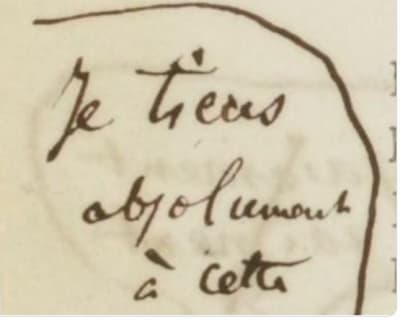 Je tiens
absolument
à cette